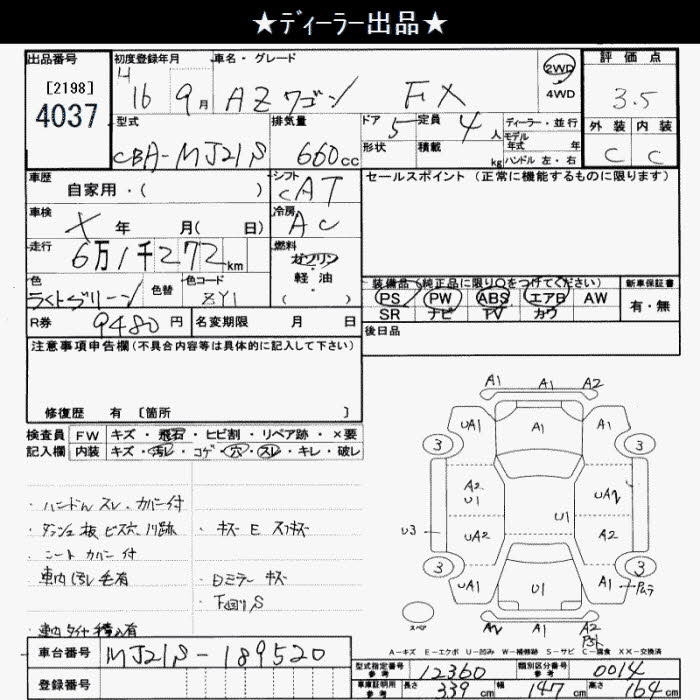 ★ディーラー出品★
出品番号 初度登録年月 車名・グレード 評価点
[2198]
4037
H16 9月 AZワゴン FX 2WD 4WD 3.5
型式 排気量 ドア 定員 ディーラー・並行 外装 内装
CBA-MJ21S 660cc 5 4人 モデル年式 年 C C
形状 積載 kg ハンドル 左・右
車歴 自家用・( ) シフト CAT セールスポイント (正常に機能するものに限ります)
車検 X 年 月( 日) 冷房 AC
走行 6万1千272km 燃料 ガソリン・軽油 ( )
色 色替 色コード ZY1 装備品(純正品に限り○をつけてください) 新車保証書
PS PW ABS エアB AW 有・無
SR ナビ TV カワ
R券 9480円 名変期限 月 日 後日品
注意事項申告欄(不具合内容等は具体的に記入して下さい)
修復歴 有 〔箇所 〕
検査員 FW キズ・飛石・ヒビ割・リペア跡・×要
記入欄 内装 キズ・汚レ・コゲ・穴・スレ・キレ・破レ
・ハンドル スレ・カバー付
・ダッシュ板 ビス穴、
・キズ E スリキズ
・シートカバー付
・車内 汚レ 毛有
・ミラー キズ
・下回りS
・車内 タイヤ積込有
A1 A1 A2
UA1 A1 A1
3 3
A2 U1 UA
U1
U3 UA2 A2
3 3
UA1 U1 A1
スペア UA1 A2
A-キズ E-エクボ U-凹み W-補修跡 S-サビ C-腐食 XX-交換済
車台番号 MJ21S-189520
登録番号
型式指定番号 参考 12360 類別区分番号 参考 0014
車庫証明用 参考 長さ 339cm 幅 147cm 高さ 164cm